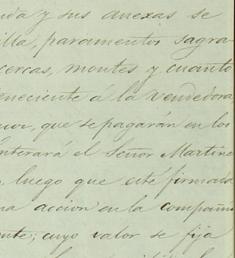 nda y sus anexas se
illa, paramentos sagra-
cercas, montes y cuanto
eneciente á la vendedora,
que se pagarán en los
nterará el Señor Martine
luego que esté firmada
na accion en la compañi
nte; cuyo valor se fija